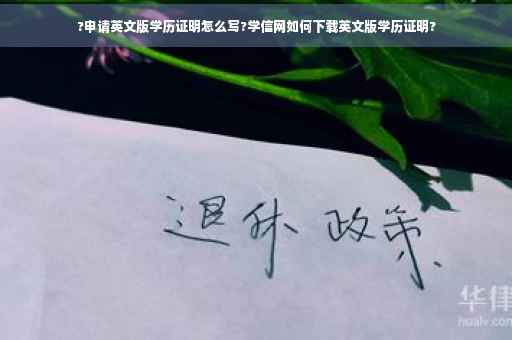 ?申请英文版学历证明怎么写?学信网如何下载英文版学历证明?
退休 政策
华律
hualv.com